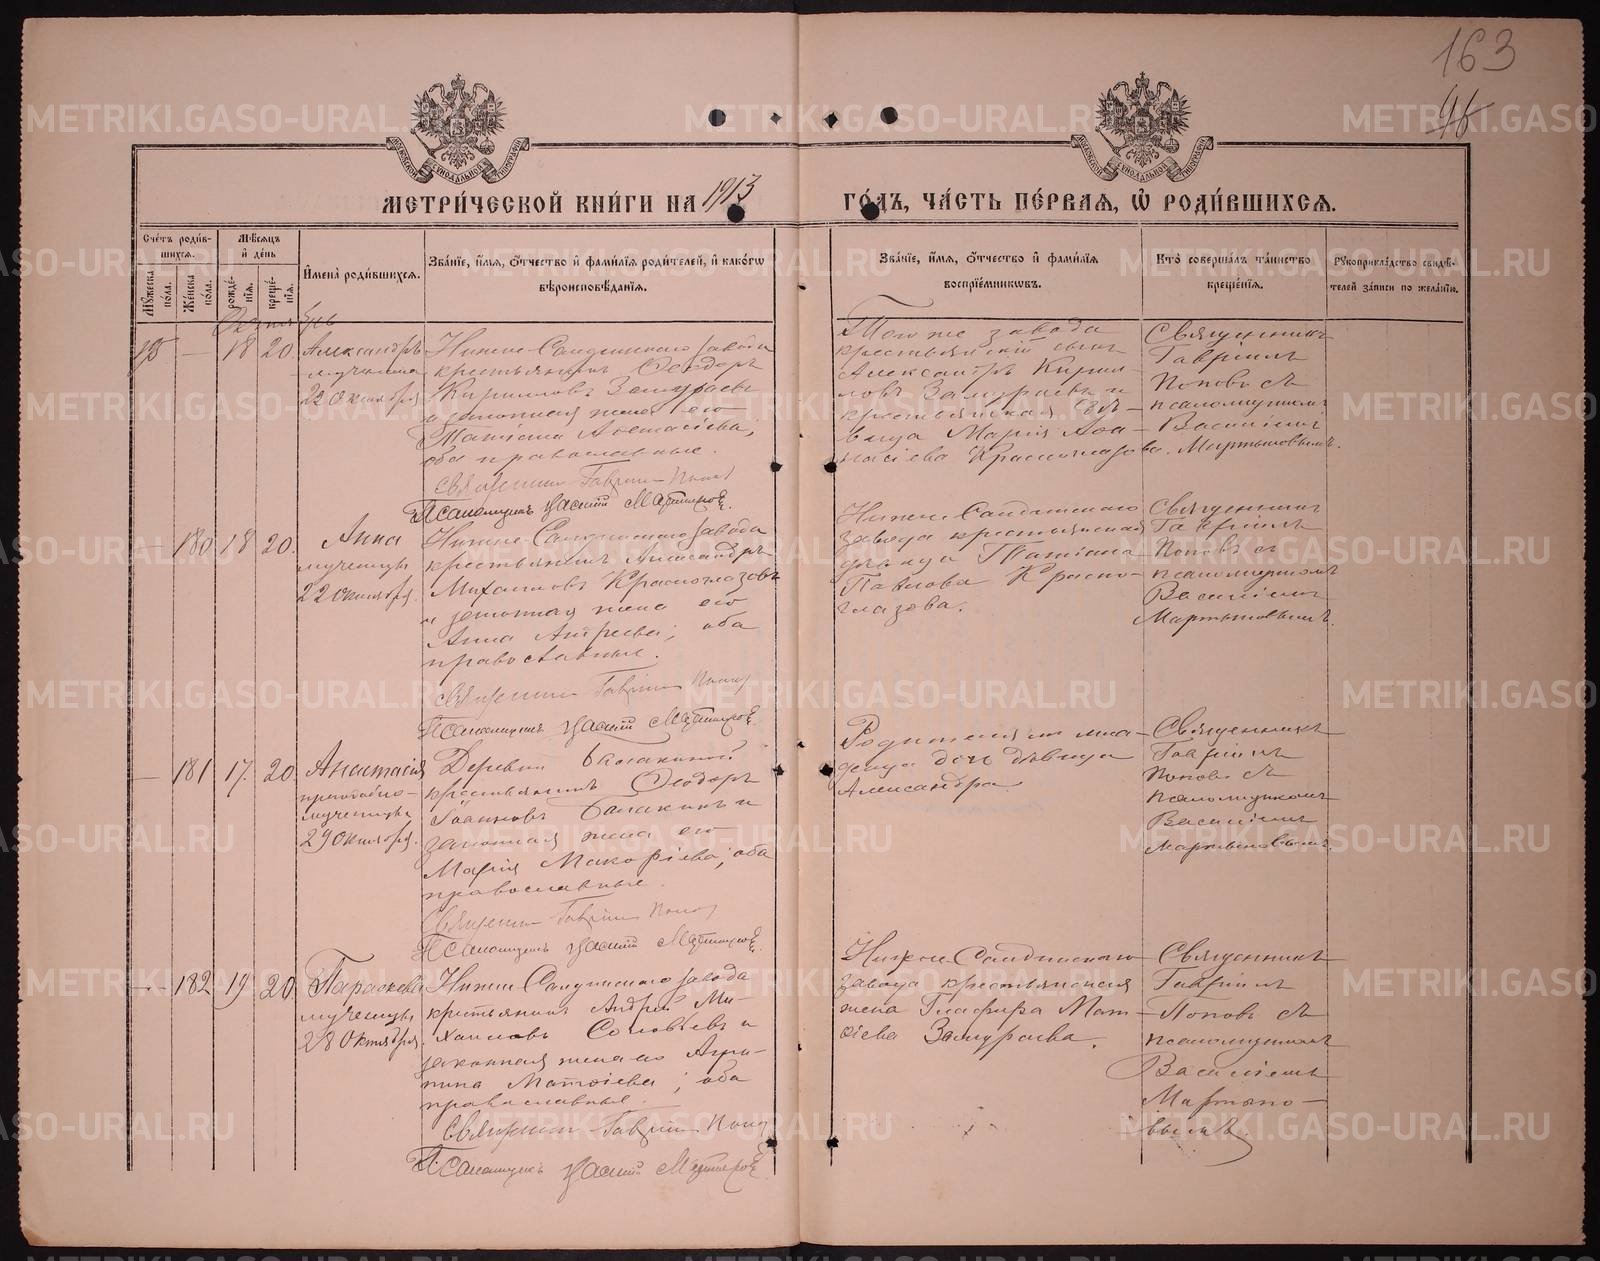 163
46
МЕТРИ́ЧЕСКОЙ КНИ́ГИ НА 1913 ГО́ДЪ, ЧА́СТЬ ПЕ́РВАѦ, Ѡ РОДИ́ВШИХСѦ.
Сче́тъ роди́вшихсѧ.
Мꙋ́жеска по́ла.
Же́нска по́ла.
Мѣ́сѧцъ и҆ де́нь
рожде́нїѧ.
креще́нїѧ.
И҆мена̀ роди́вшихсѧ.
Зва́нїе, и҆́мѧ, ѻ҆́тчество и҆ фами́лїѧ роди́телей, и҆ како́гѡ
вѣроисповѣ́данїѧ.
Зва́нїе, и҆́мѧ, ѻ҆́тчество и҆ фами́лїѧ
воспрїе́мникѡвъ.
Кто̀ соверша́лъ та́инство
креще́нїѧ.
Рꙋкоприкла́дство свидѣ́-
телей за́писи по жела́нїю.
Октябрь
— 18 20.
Александръ
мученика
22 Октября
Нижне-Салдинскаго завода
крестьянинъ Ѳеодоръ
Кирилловъ Замураевъ
и законная жена его
Татіана Аѳанасіева,
оба православные.
Священникъ Гавріилъ Поповъ
Псаломщикъ Василій Мартыновъ
Того же завода
крестьянскій сынъ
Александръ Кирил-
ловъ Замураевъ и
крестьянская дѣ-
вица Марія Аѳа-
насіева Красноглазова.
Священникъ
Гавріилъ
Поповъ съ
псаломщикомъ
Василіемъ
Мартыновымъ.
— 180 18 20.
Анна
мученицы
22 Октября.
Нижне Салдинскаго завода
крестьянинъ Александръ
Михаиловъ Красноглазовъ
и законная жена его
Анна Андреева; оба
православные.
Священникъ Гавріилъ Поповъ
Псаломщикъ Василій Мартыновъ.
Нижне-Салдинскаго
завода крестьянская
дѣвица Татіана
Павлова Красно-
глазова.
Священникъ
Гавріилъ
Поповъ съ
псаломщикомъ
Василіемъ
Мартыновымъ.
— 181 17. 20
Анастасія
преподобно-
мученицы
29 Октября.
Деревни Балакиной
крестьянинъ Ѳеодоръ
Іоанновъ Балакинъ и
законная жена его
Марія Макаріева; оба
православные.
Священникъ Гавріилъ Поповъ
Псаломщикъ Василій Мартыновъ.
Родителей мла-
денца дочь дѣвица
Александра
Священникъ
Гавріилъ
Поповъ съ
псаломщикомъ
Василіемъ
Мартыновымъ.
— 182 19 20.
Параскева
мученицы
28 Октября.
Нижне Салдинскаго завода
крестьянинъ Андрей Ми-
хаиловъ Соловьевъ и
законная жена его Агрип-
пина Матѳіева; оба
православные.
Священникъ Гавріилъ Поповъ
Псаломщикъ Василій Мартыновъ
Нижне-Салдинскаго
завода крестьянская
жена Глафира Мат-
ѳіева Замураева.
Священникъ
Гавріилъ
Поповъ съ
псаломщикомъ
Василіемъ
Мартыно-
вымъ.
METRIKI.GASO-URAL.RU